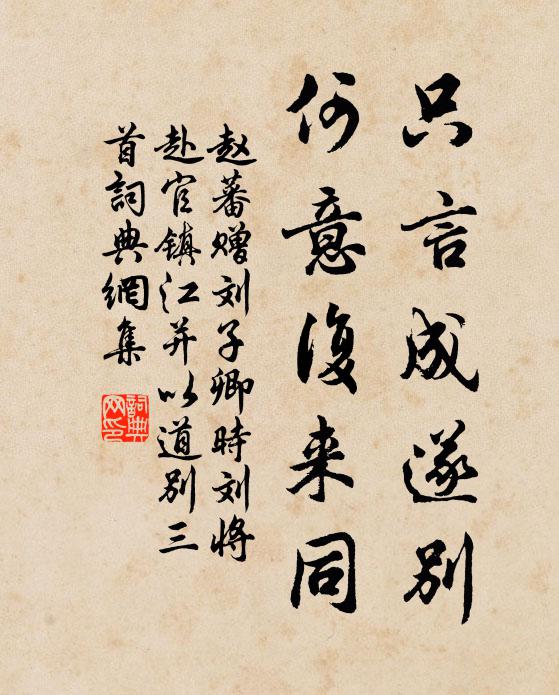 只言成遂别
何意復来同
赵蕃赠刘子卿時刘将
赴官镇江并以道别三
首詞典網集
詞典
网印